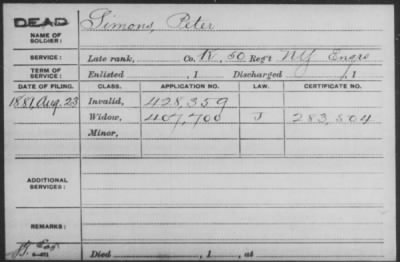 DEAD
NAME OF SOLDIER: Simons, Peter
SERVICE: Late rank, Co. K, 50 Reg't NY Engrs
TERM OF SERVICE: Enlisted , 1 Discharged , 1
DATE OF FILING. CLASS. APPLICATION NO. LAW. CERTIFICATE NO.
1881, Aug. 23 Invalid, 428,359
Widow, 407,700 J 283,504
Minor,
ADDITIONAL SERVICES:
REMARKS:
Died , 1 , at